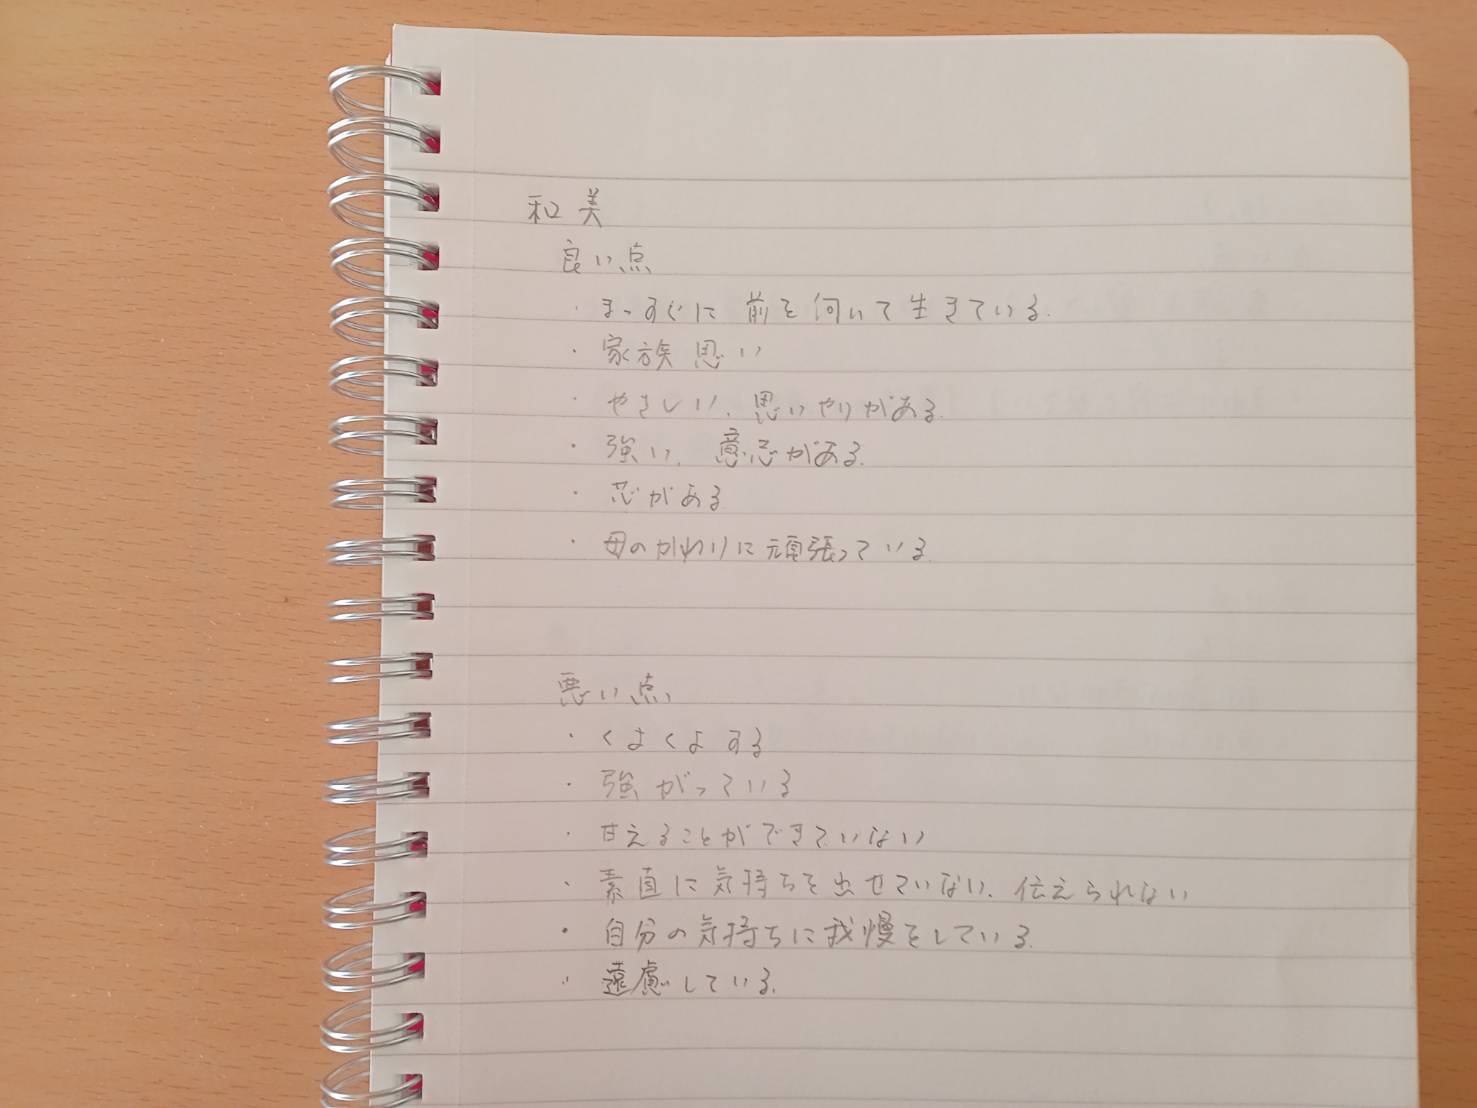 和美
良い点
・まっすぐに前を向いて生きている.
・家族思い
・やさしい、思いやりがある.
・強い、意志がある.
・芯がある
・母のかわりに頑張っている.
悪い点
・くよくよする
・強がっている
・甘えることができていない
・素直に気持ちを出せていない、伝えられない
・自分の気持ちに我慢をしている.
・遠慮している.